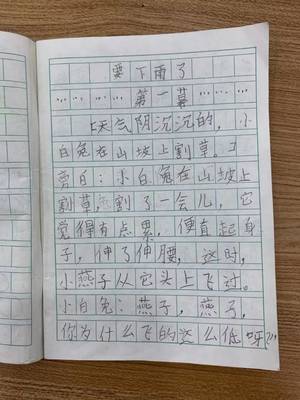 要下雨了
第一幕
[天气阴沉沉的，小
白兔在山坡上割草。]
旁白：小白兔在山坡上
割草割了一会儿，它
觉得有点累，便直起身
子，伸了伸腰，这时，
小燕子从它头上飞过。
小白兔：燕子，燕子，
你为什么飞的这么低呀？